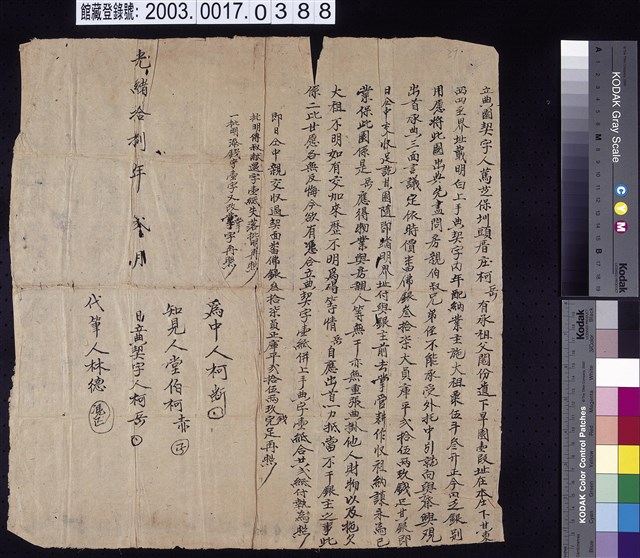 館藏登錄號: 2003.0017.0388
立典園契字人萬斗保圳頭厝庄柯岳有承祖父鬮份遺下旱園壹段址在本庄下甘東
西四至界址載明白上手典契字內年配納業主施大租粟伍斗叁升正今因乏銀別
用應將此園出典先盡問房親伯叔兄弟侄不能承受外托中引就向與
出首承典三面言議定依時價當佛銀叁拾柒大員庫平弍拾伍兩玖錢足其銀即
日仝中交收足訖其園隨即踏明界址付與銀主前去掌管耕作收租納課永為己
業保此園係是岳應得物業與房親人等無干亦無重張典掛他人財物以及拖欠
大租不明如有交加來歷不明為碍等情岳自應出首一力抵當不干銀主之事此
係二比甘愿各無反悔今欲有憑合立典契字壹紙併上手典字壹紙合共弍紙付執為照
即日仝中親交收過契面當佛銀叁拾柒員正庫平弍拾伍兩玖錢完足再照
一批明添錢字壹字又改掌字再照
光緒拾捌年 月
為中人柯
知見人堂伯柯赤
日立典契字人柯岳
代筆人林德
A
M
B
KODAK Gray Scale
C
Y
M
Kodak
KODAK Color Control Patches
Kodak
Black
White
Magenta
Red
Yellow
Green
Cyan
Blue